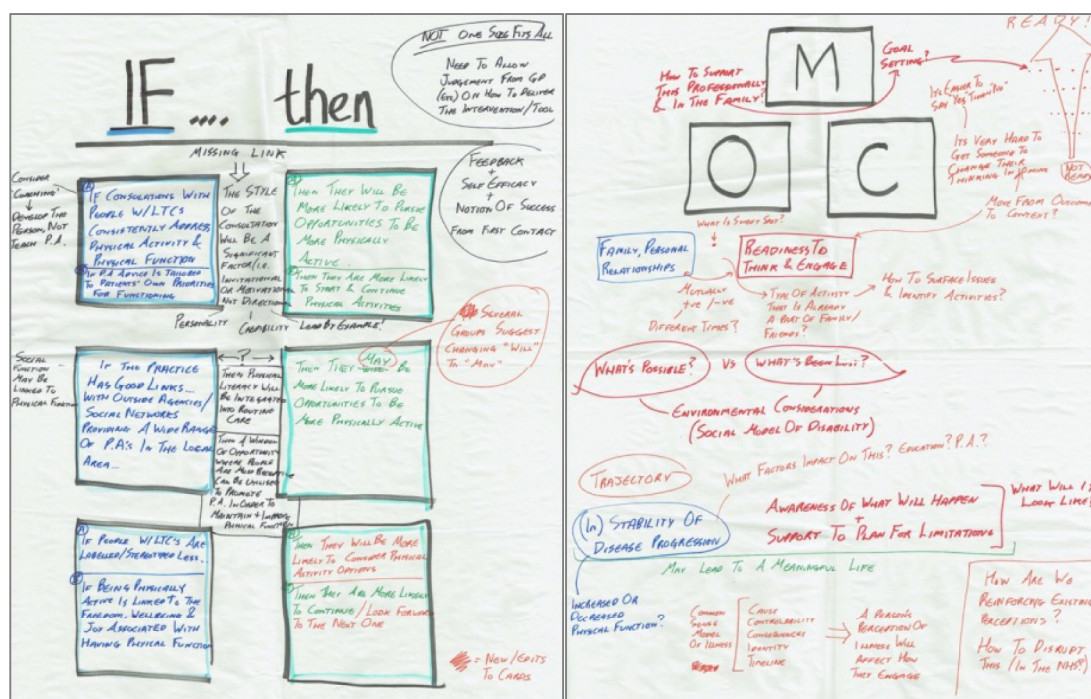 NOT ONE SIZE FITS ALL
NEED TO ALLOW
JUDGEMENT FROM GP
(ETC) ON HOW TO DELIVER
THE INTERVENTION/TOOL
IF.... then
MISSING LINK
CONSIDER
"COACHING"
DEVELOP THE
PERSON, NOT
TEACH P.A.
A
IF CONSULTATIONS WITH
PEOPLE W/LTC'S
CONSISTENTLY ADDRESS
PHYSICAL ACTIVITY &
PHYSICAL FUNCTION
IF P.A ADVICE IS TAILORED
TO PATIENTS' OWN PRIORITIES
FOR FUNCTIONING
THE STYLE
OF THE
CONSULTATION
WILL BE A
SIGNIFICANT
FACTOR/I.E.
INVITATIONAL
OR MOTIVATIONAL
NOT DIRECTIONAL
THEN THEY WILL BE
MORE LIKELY TO PURSUE
OPPORTUNITIES TO BE
MORE PHYSICALLY
ACTIVE.
THEN THEY ARE MORE LIKELY
TO START & CONTINUE
PHYSICAL ACTIVITIES
FEEDBACK
+
SELF EFFICACY
+
NOTION OF SUCCESS
FROM FIRST CONTACT
PERSONALITY
CAPABILITY
LEAD BY EXAMPLE!
SEVERAL
GROUPS SUGGEST
CHANGING "WILL"
TO "MAY"
SOCIAL
FUNCTION
MAY BE
LINKED TO
PHYSICAL FUNCTION
IF THE PRACTICE
HAS GOOD LINKS...
WITH OUTSIDE AGENCIES/
SOCIAL NETWORKS
PROVIDING A WIDE RANGE
OF P.A'S IN THE LOCAL
AREA...
?
THEN PHYSICAL
LITERACY WILL
BE INTEGRATED
INTO ROUTINE
CARE
THEN A WINDOW
OF OPPORTUNITY
WHERE PEOPLE
ARE MOST RECEPTIVE
CAN BE UTILISED
TO PROMOTE
P.A. IN ORDER TO
MAINTAIN + IMPROVE
PHYSICAL FUNCTION
MAY
THEN THEY WILL BE
MORE LIKELY TO PURSUE
OPPORTUNITIES TO BE
MORE PHYSICALLY ACTIVE
A
IF PEOPLE W/LTC'S ARE
LABELLED/STEREOTYPED LESS...
IF BEING PHYSICALLY
ACTIVE IS LINKED TO THE
FREEDOM, WELLBEING &
JOY ASSOCIATED WITH
HAVING PHYSICAL FUNCTION
THEN THEY WILL BE MORE
LIKELY TO CONSIDER PHYSICAL
ACTIVITY OPTIONS
THEN THEY ARE MORE LIKELY
TO CONTINUE/LOOK FORWARD
TO THE NEXT ONE
= NEW/EDITS
TO CARDS
READY!
M
O
C
HOW TO SUPPORT
THIS PROFESSIONALLY
& IN THE FAMILY?
GOAL
SETTING?
IT'S EASIER TO
SAY "YES" THAN "NO"
ITS VERY HARD TO
GET SOMEONE TO
CHANGE THEIR
THINKING IN
NOT
READY
MOVE FROM OUTCOME
TO CONTEXT?
WHAT IS SWEET SPOT?
FAMILY, PERSONAL
RELATIONSHIPS
READINESS TO
THINK & ENGAGE
MUTUALLY
+VE/-VE
DIFFERENT TIMES?
TYPE OF ACTIVITY
THAT IS ALREADY
A PART OF FAMILY/
FRIENDS?
HOW TO SURFACE ISSUES
& IDENTIFY ACTIVITIES?
WHAT'S POSSIBLE? VS WHAT'S BEEN LOST?
ENVIRONMENTAL CONSIDERATIONS
(SOCIAL MODEL OF DISABILITY)
TRAJECTORY
WHAT FACTORS IMPACT ON THIS? EDUCATION? P.A.?
(IN) STABILITY OF
DISEASE PROGRESSION
AWARENESS OF WHAT WILL HAPPEN
+
SUPPORT TO PLAN FOR LIMITATIONS
WHAT WILL IT
LOOK LIKE?
MAY LEAD TO A MEANINGFUL LIFE
INCREASED OR
DECREASED
PHYSICAL FUNCTION?
COMMON
SENSE
MODEL
OF ILLNESS
CAUSE
CONTROLABILITY
CONSEQUENCES
IDENTITY
TIMELINE
A PERSON'S
PERCEPTION OF
ILLNESS WILL
AFFECT HOW
THEY ENGAGE
HOW ARE WE
REINFORCING EXISTING
PERCEPTIONS?
HOW TO DISRUPT
THIS/IN THE NHS?